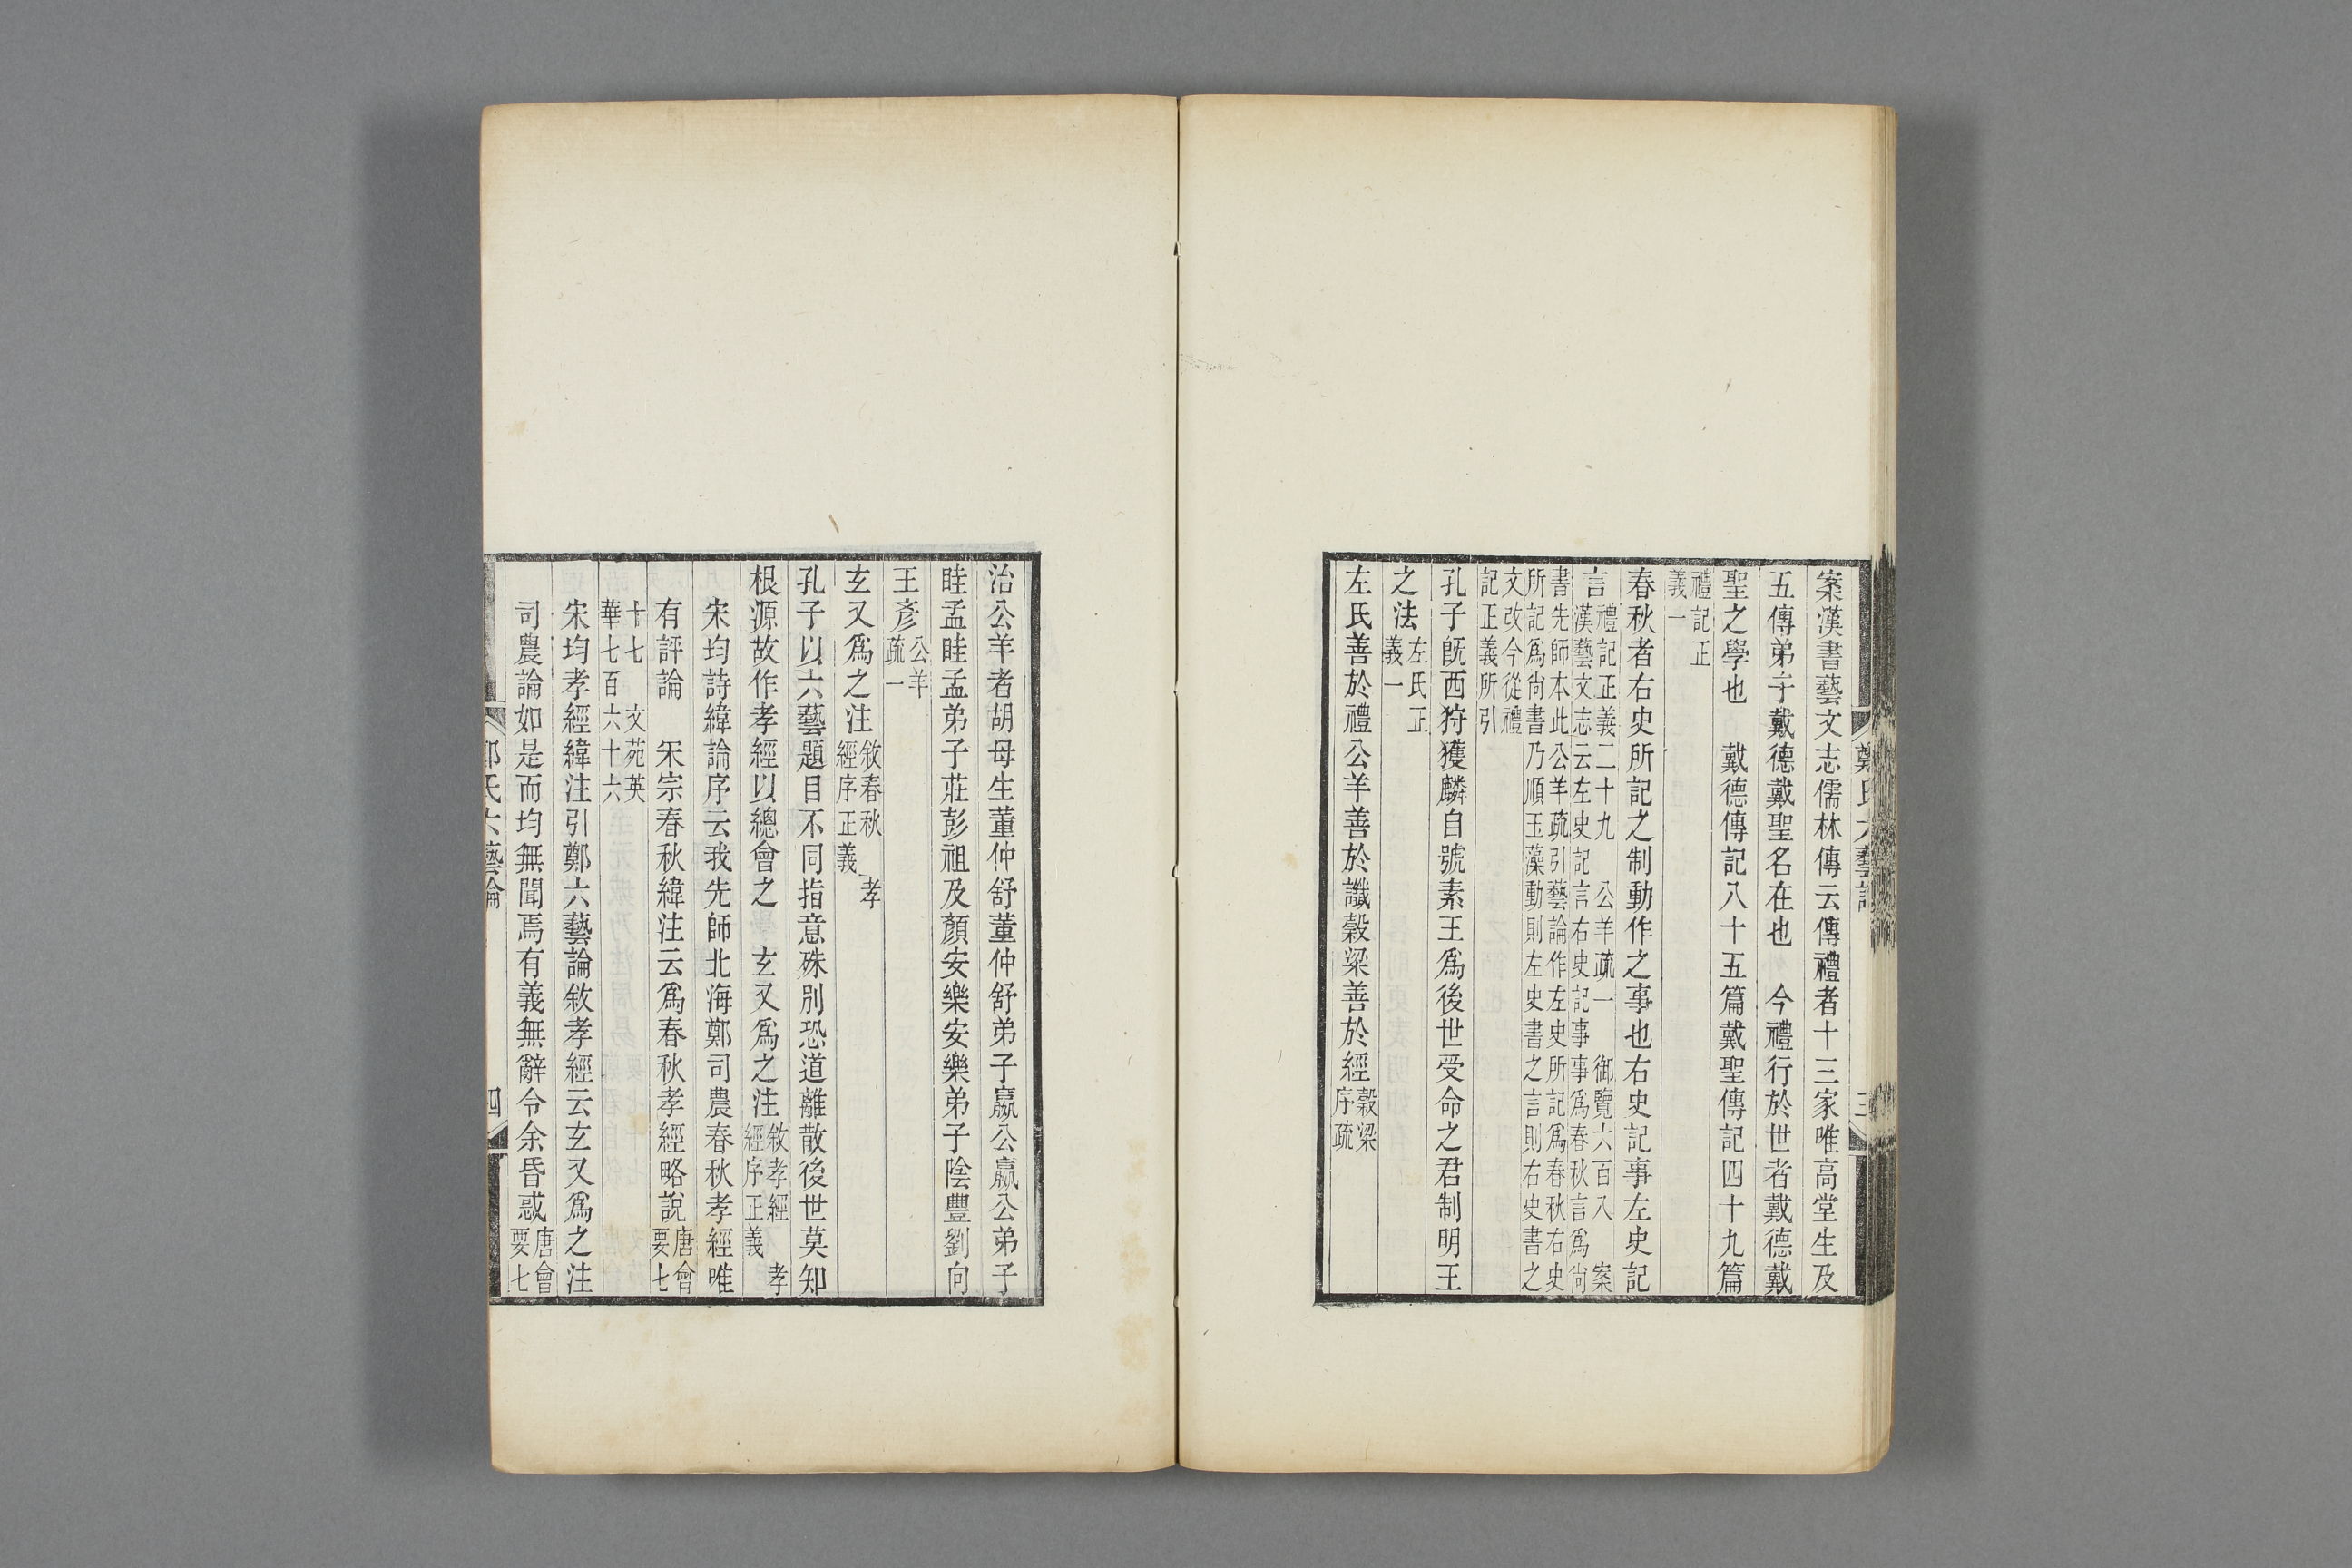 案漢書藝文志儒林傳云傳禮者十三家唯高堂生及
五傳弟子戴德戴聖名在也　今禮行於世者戴德戴
聖之學也　戴德傳記八十五篇戴聖傳記四十九篇
禮記正
義一
春秋者右史所記之制動作之事也右史記事左史記
言
禮記正義二十九　公羊疏一　御覽六百八　案
漢藝文志云左史記言右史記事事爲春秋言爲尚
書先師本此公羊疏引藝論作左史所記爲春秋右史
所記爲尚書乃順玉藻動則左史書之言則右史書之
文改今從禮
記正義所引
孔子既西狩獲麟自號素王爲後世受命之君制明王
之法
左氏正
義一
左氏善於禮公羊善於讖穀梁善於經
穀梁
序疏
治公羊者胡母生董仲舒董仲舒弟子嬴公嬴公弟子
眭孟眭孟弟子莊彭祖及顏安樂安樂弟子陰豐劉向
王彥
公羊
疏一
玄又爲之注
敘春秋　孝
經序正義
孔子以六藝題目不同指意殊別恐道離散後世莫知
根源故作孝經以總會之　玄又爲之注
敘孝經　孝
經序正義
宋均詩緯論序云我先師北海鄭司農春秋孝經唯
有評論　宋宗春秋緯注云爲春秋孝經略說
唐會
要七
十七　文苑英
華七百六十六
宋均孝經緯注引鄭六藝論敘孝經云玄又爲之注
司農論如是而均無聞焉有義無辭令余昏惑
唐會
要七
鄭氏六藝論
四